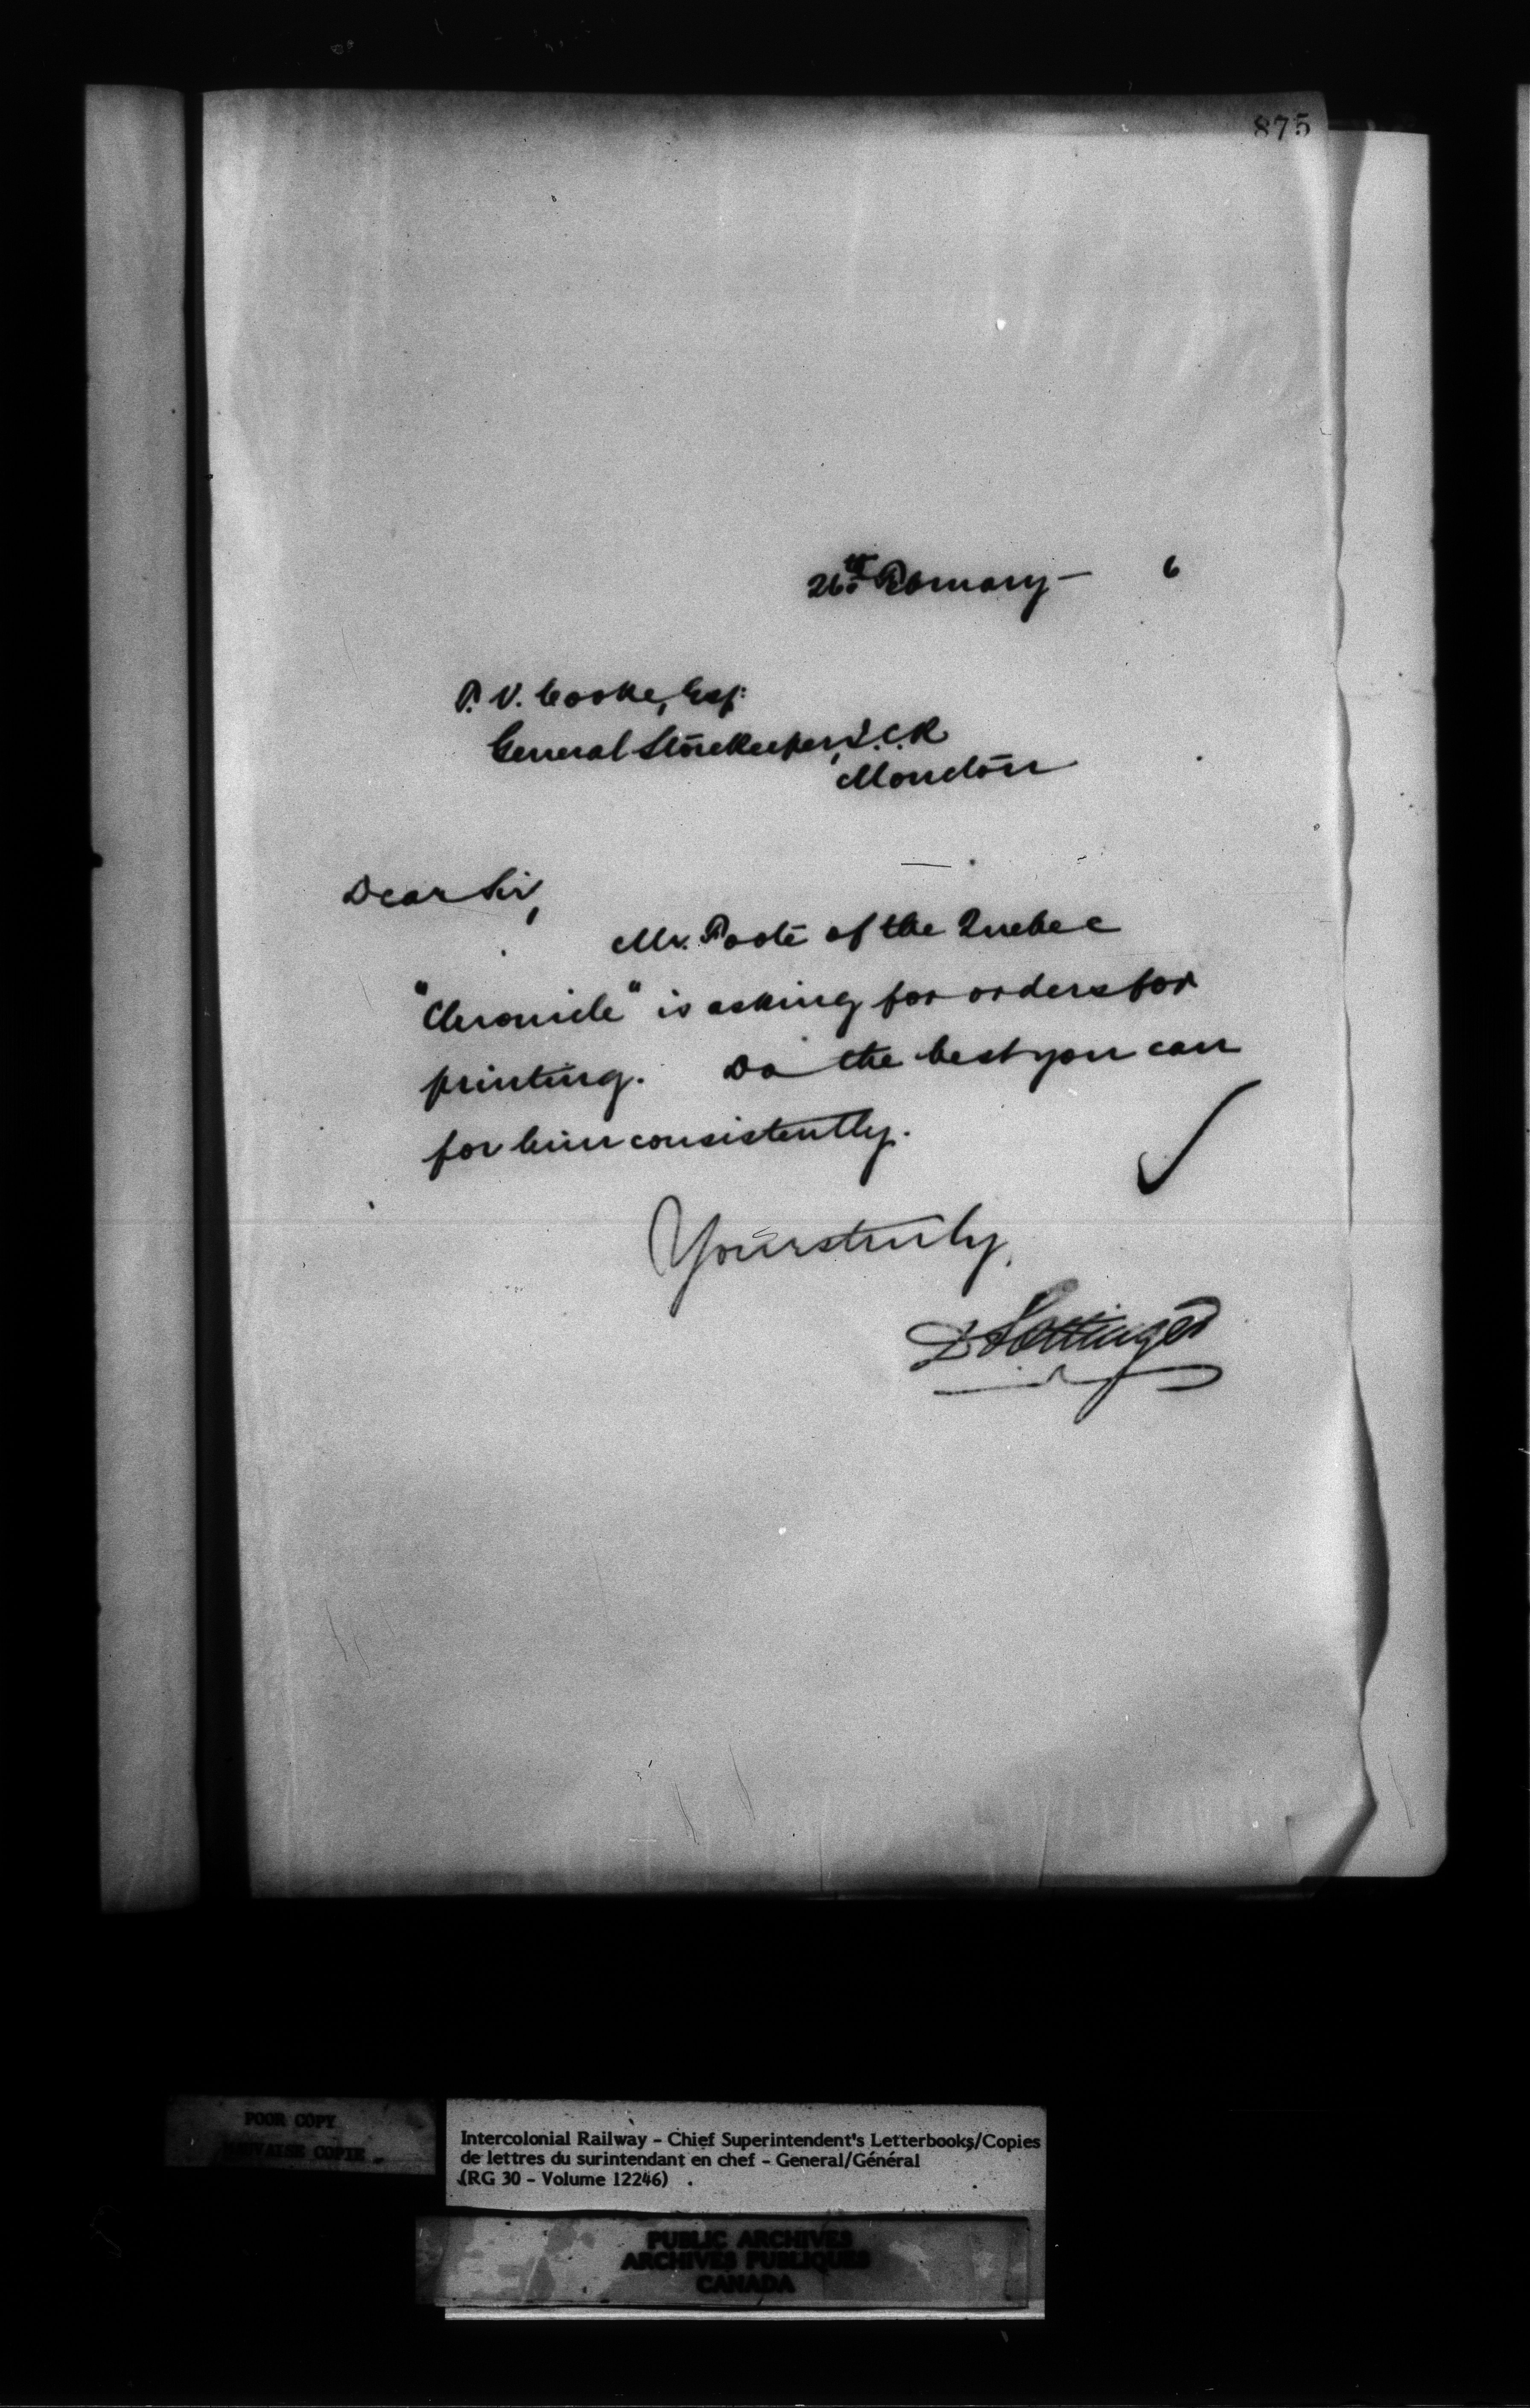 875
26th February — 6
P. V. Cooke, Esq:
General Storekeeper, I.C.R
Moncton
Dear Sir,
Mr. Foote of the Quebec
"Chronicle" is asking for orders for
printing. Do the best you can
for him consistently.
Yours truly,
D Pottinger
POOR COPY
MAUVAISE COPIE
Intercolonial Railway - Chief Superintendent's Letterbooks/Copies
de lettres du surintendant en chef - General/Général
(RG 30 - Volume 12246)
PUBLIC ARCHIVES
ARCHIVES PUBLIQUES
CANADA